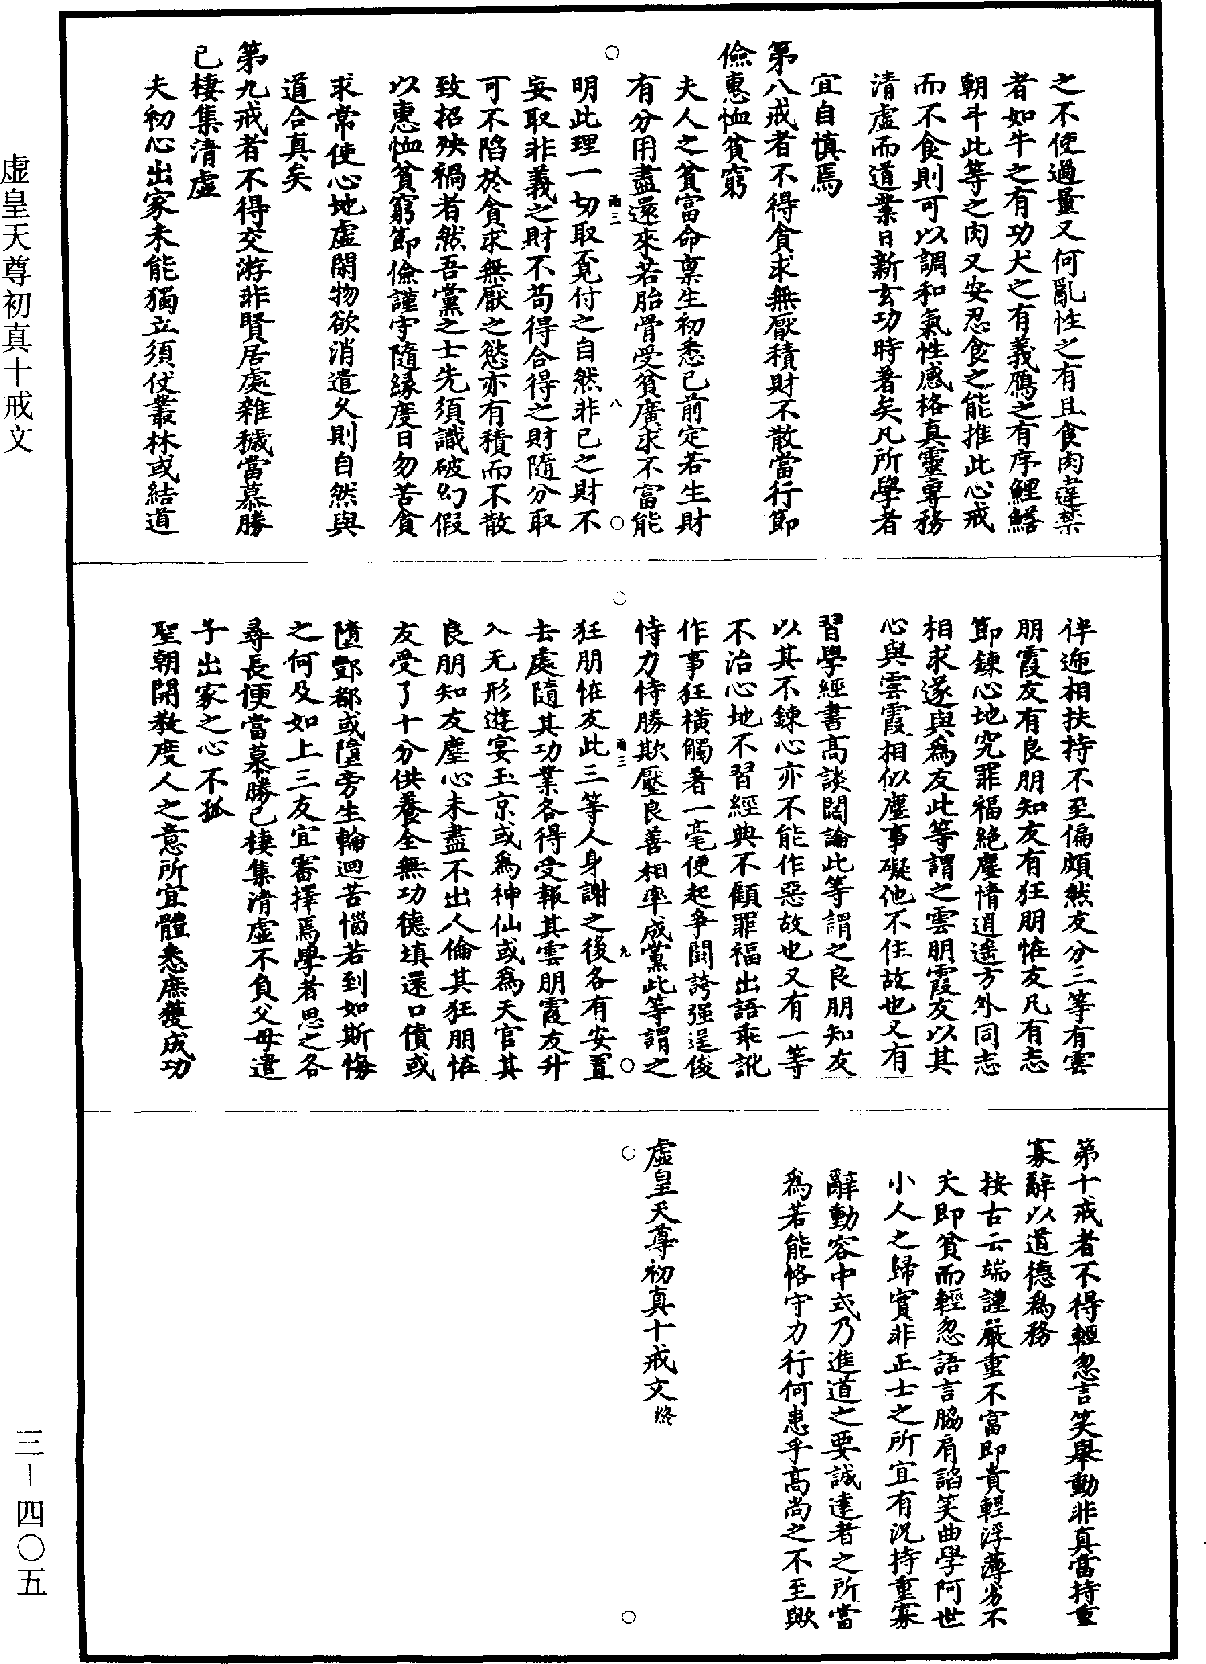 之不使過量又何亂性之有且食肉違禁
者如牛之有功犬之有義鴈之有序鯉鱔
朝斗此等之肉又安忍食之能推此心戒
而不食則可以調和氣性感格真靈專務
清虛而道業日新玄功時著矣凡所學者
宜自慎焉
第八戒者不得貪求無厭積財不散當行節
儉惠恤貧窮
夫人之貧富命稟生初悉已前定若生財
有分用盡還來若胎骨受貧廣求不富能
雨三
八
明此理一切取覓付之自然非已之財不
妄取非義之財不苟得合得之財隨分取
可不陷於貪求無厭之慾亦有積而不散
致招殃禍者然吾黨之士先須識破幻假
以惠恤貧窮節儉謹守隨緣度日勿苦貪
求常使心地虛閑物欲消遣久則自然與
道合真矣
第九戒者不得交游非賢居處雜穢當慕勝
已棲集清虛
夫初心出家未能獨立須仗叢林或結道
伴迊相扶持不至偏頗然友分三等有雲
朋霞友有良朋知友有狂朋怪友凡有志
節鍊心地究罪福絕塵情逍遙方外同志
相求遂與為友此等謂之雲朋霞友以其
心與雲霞相似塵事礙他不住故也又有
習學經書高談闊論此等謂之良朋知友
以其不鍊心亦不能作惡故也又有一等
不治心地不習經典不顧罪福出語乖訛
作事狂橫觸著一毫便起爭鬬誇强逞俊
恃力恃勝欺壓良善相率成黨此等謂之
雨三
九
狂朋怪友此三等人身謝之後各有安置
去處隨其功業各得受報其雲朋霞友升
入无形遊宴玉京或為神仙或為天官其
良朋知友塵心未盡不出人倫其狂朋怪
友受了十分供養全無功德填還口債或
墮酆都或墮旁生輪迴苦惱若到如斯悔
之何及如上三友宜審擇焉學者思之各
尋長便當慕勝已棲集清虛不負父母遣
子出家之心不孤
聖朝開教度人之意所宜體悉庶獲成功
第十戒者不得輕忽言笑舉動非真當持重
寡辭以道德為務
按古云端謹嚴重不富即貴輕浮薄劣不
夭即貧而輕忽語言脇肩諂笑曲學阿世
小人之歸實非正士之所宜有況持重寡
辭動容中式乃進道之要誠達者之所當
為若能恪守力行何患乎高尚之不至歟
虛皇天尊初真十戒文終
虛皇天尊初真十戒文
三－四〇五